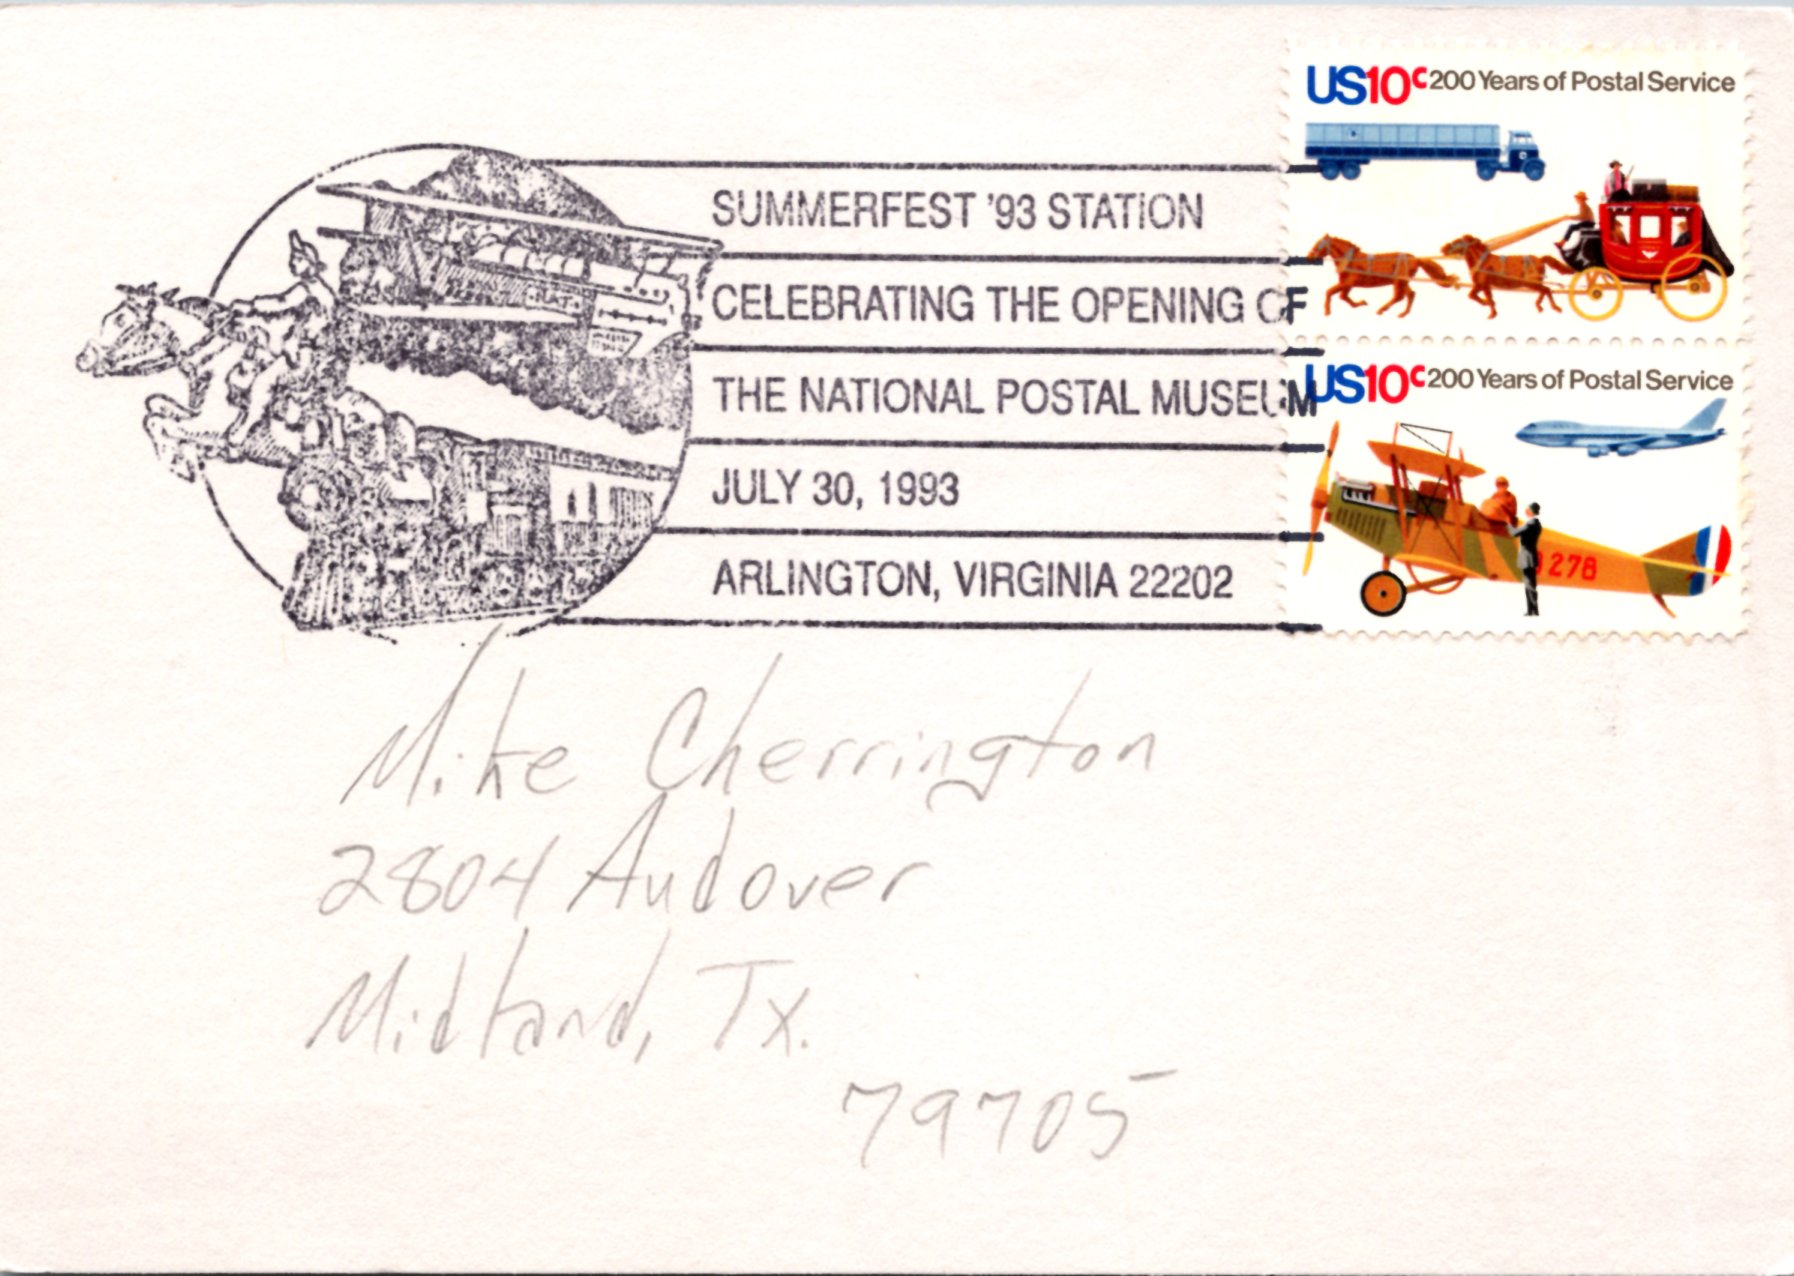 US10c 200 Years of Postal Service
SUMMERFEST '93 STATION
CELEBRATING THE OPENING OF
THE NATIONAL POSTAL MUSEUM
JULY 30, 1993
ARLINGTON, VIRGINIA 22202
US10c 200 Years of Postal Service
278
Mike Cherrington
2804 Andover
Midland, Tx.
79705